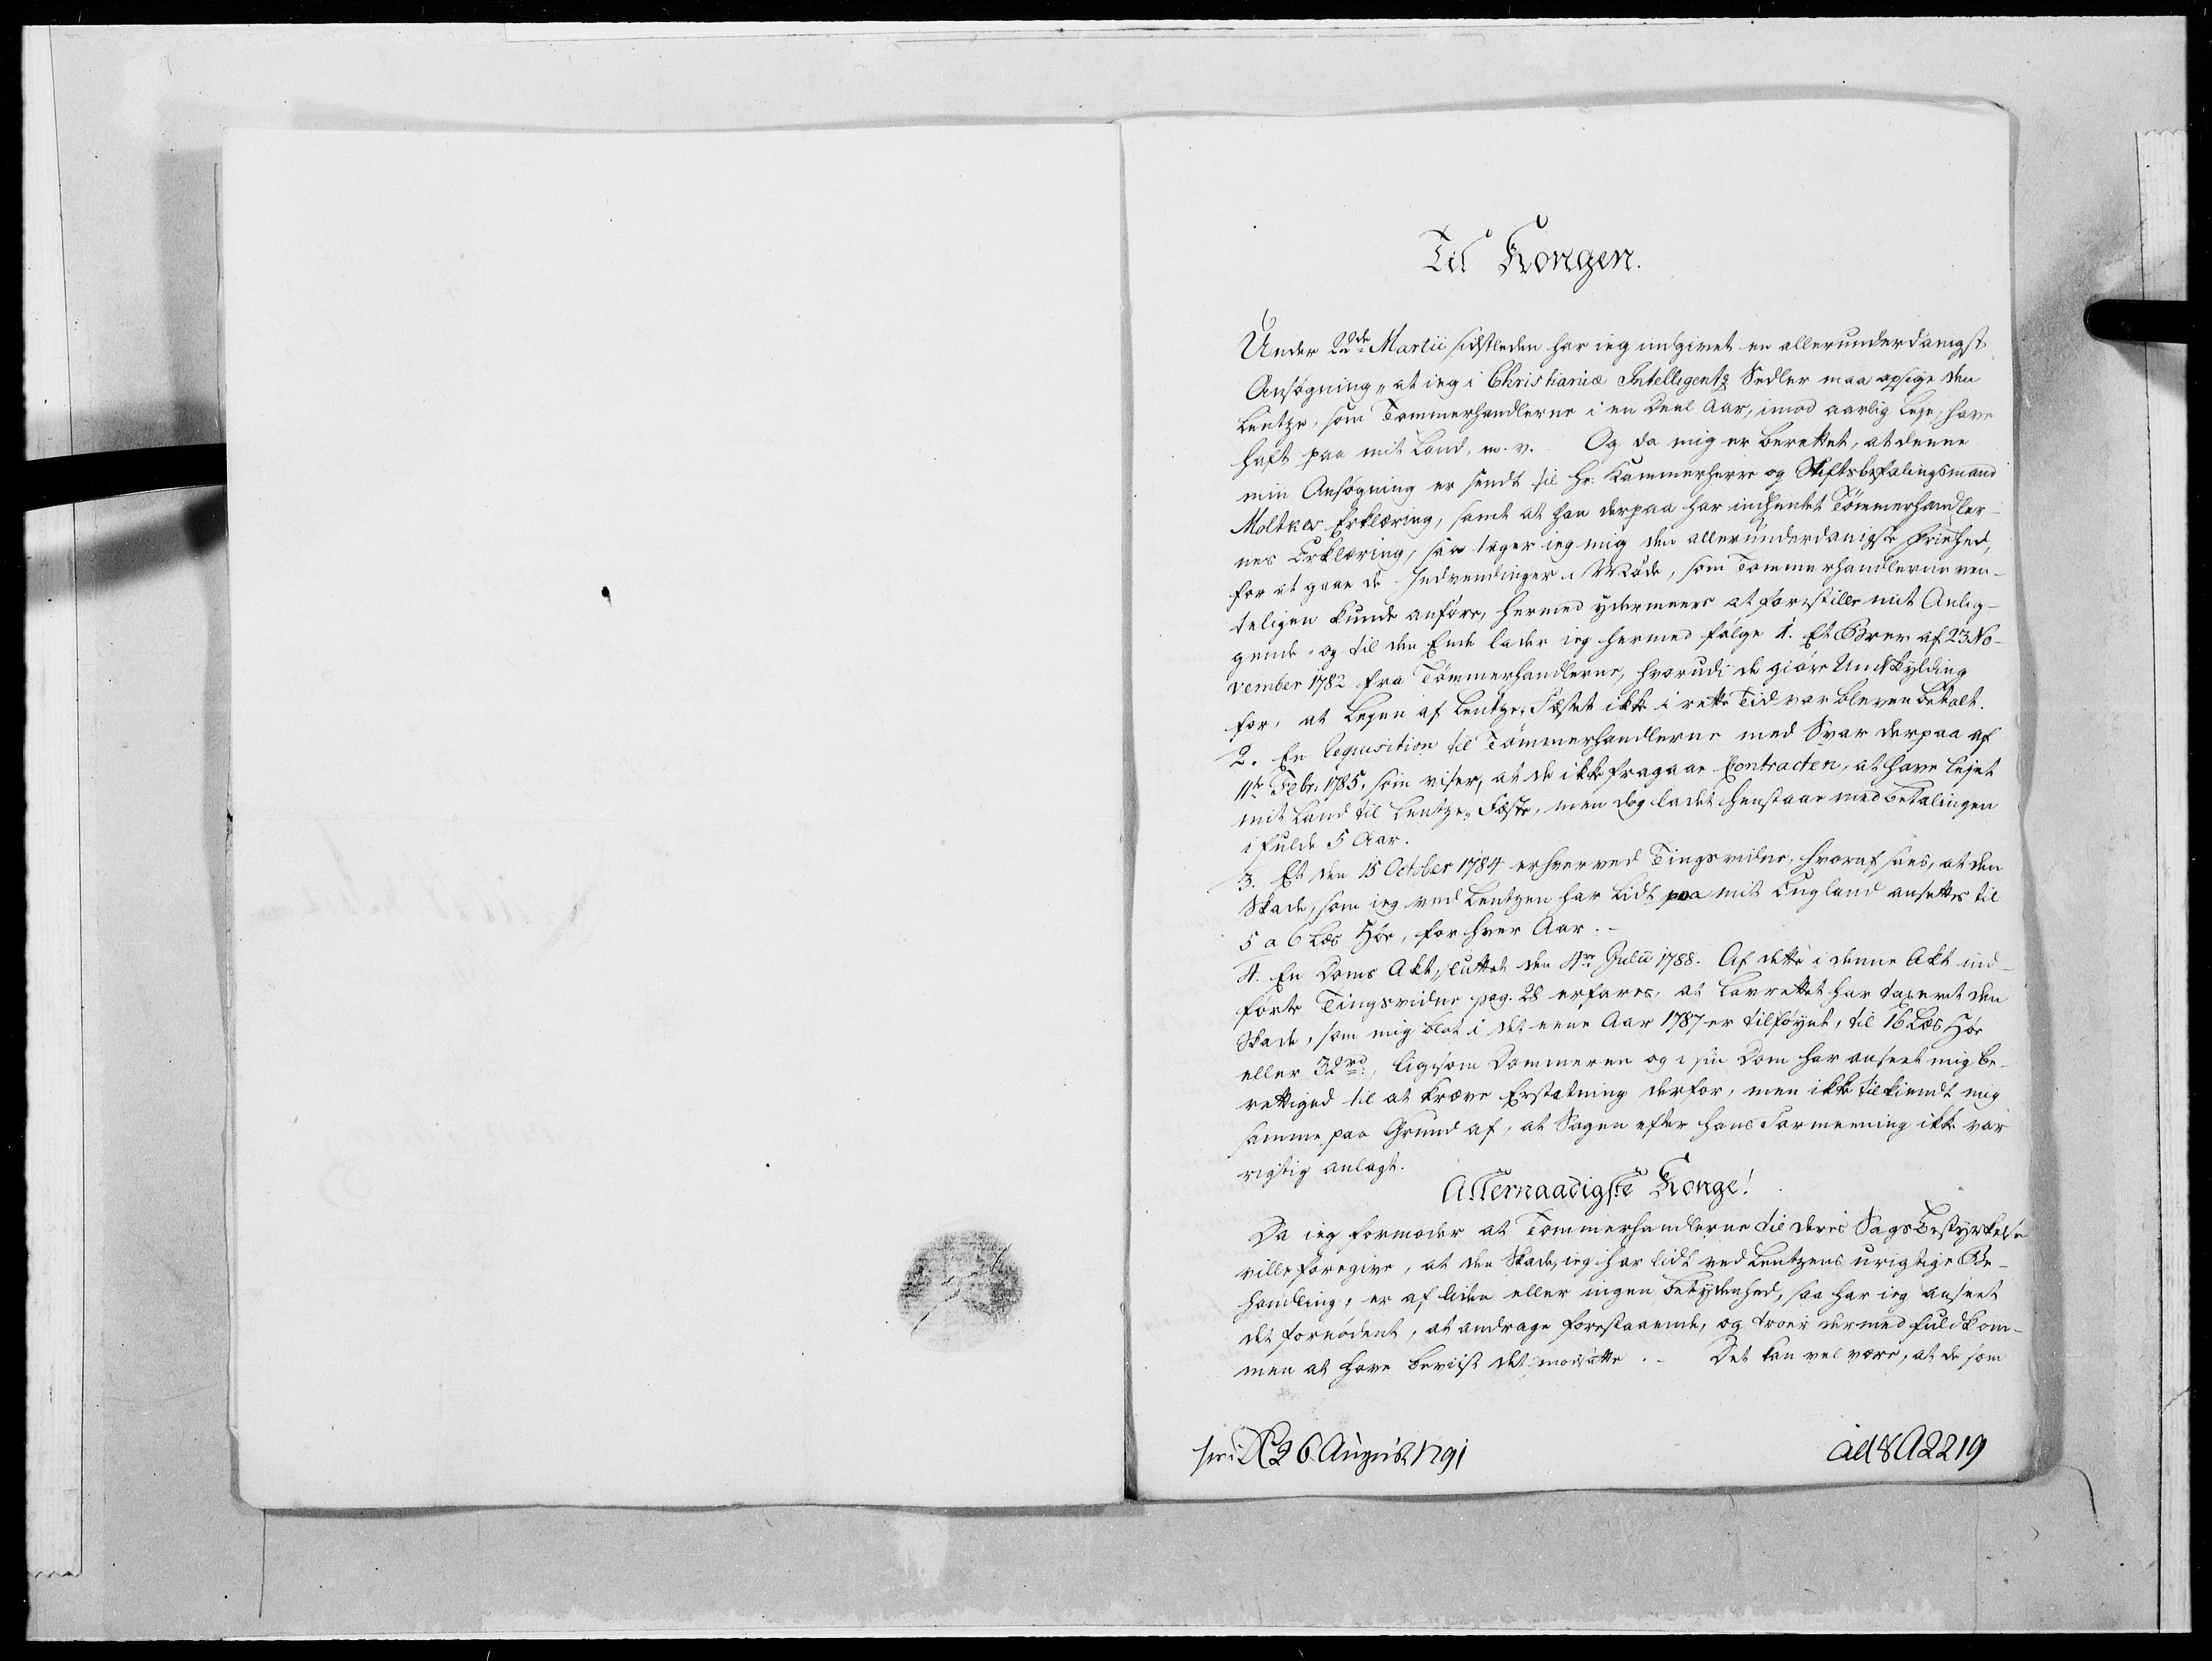 Til Kongen.
Under 22de Martii sidstleden har ieg indgivet en allerunderdanigst
Ansøgning, at ieg i Christianiæ Intelligentz Sedler maa opsige den
Lentze, som Tømmerhandlerne i en Deel Aar, imod aarlig Leje, have
haft paa mit Land, m. v. Og da mig er berettet, at denne
min Ansøgning er sendt til Hr. Kammerherre og Stiftsbefalingsmand
Moltkes Erklæring, samt at han derpaa har indhentet Tømmerhandler-
nes Erklæring, saa tager ieg mig den allerunderdanigste Friehed,
for at gaae de Indvendinger i Møde, som Tømmerhandlerne ven-
teligen kunde anføre, hermed ydermeere at forestille mit Anlig-
gende, og til den Ende lader ieg hermed følge 1. Et Brev af 23 No-
vember 1782 fra Tømmerhandlerne, hvorudi de giøre Undskylding
for, at Lejen af Lentze-Fæstet ikke i rette Tid var bleven betalt.
2. En Requisition til Tømmerhandlerne med Svar derpaa af
11te Febr. 1785, som viser, at de ikke fragaae Contracten, at have lejet
mit Land til Lentze-Fæste, men dog ladet henstaae med Betalingen
i fulde 5 Aar.
3. Et den 15 October 1784 erhverved Tingsvidne, hvoraf sees, at den
Skade, som ieg ved Lentzen har lidt paa mit England ansettes til
5 a 6 Læs Høe, for hver Aar.-
4. En Doms Akt, sluttet den 4de Julii 1788. Af dette i denne Akt ind-
førte Tingsvidne pag. 28 erfares, at Lavrettet har taxeret den
Skade, som mig blot i det eene Aar 1787 er tilføyet, til 16 Læs Høe
eller 32rd, ligesom Dommeren og i sin Dom har anseet mig be-
rettiged til at kræve Erstatning derfor, men ikke tilkiendt mig
samme, paa Grund af, at Sagen efter hans Formeening ikke var
rigtig anlagt.
Allernaadigste Konge!
Da ieg formoder at Tømmerhandlerne til deres Sags Bestyrkelse
ville foregive, at den Skade, ieg har lidt ved Lentzens urigtige Be-
handling, er af liden eller ingen Betydenhed, saa har ieg anseet
det fornødent, at andrage forestaaende, og troer dermed fuldkom-
men at have beviist det modsatte. - Det kan vel være, at de som
26 August 1791
ad 8 A 2219